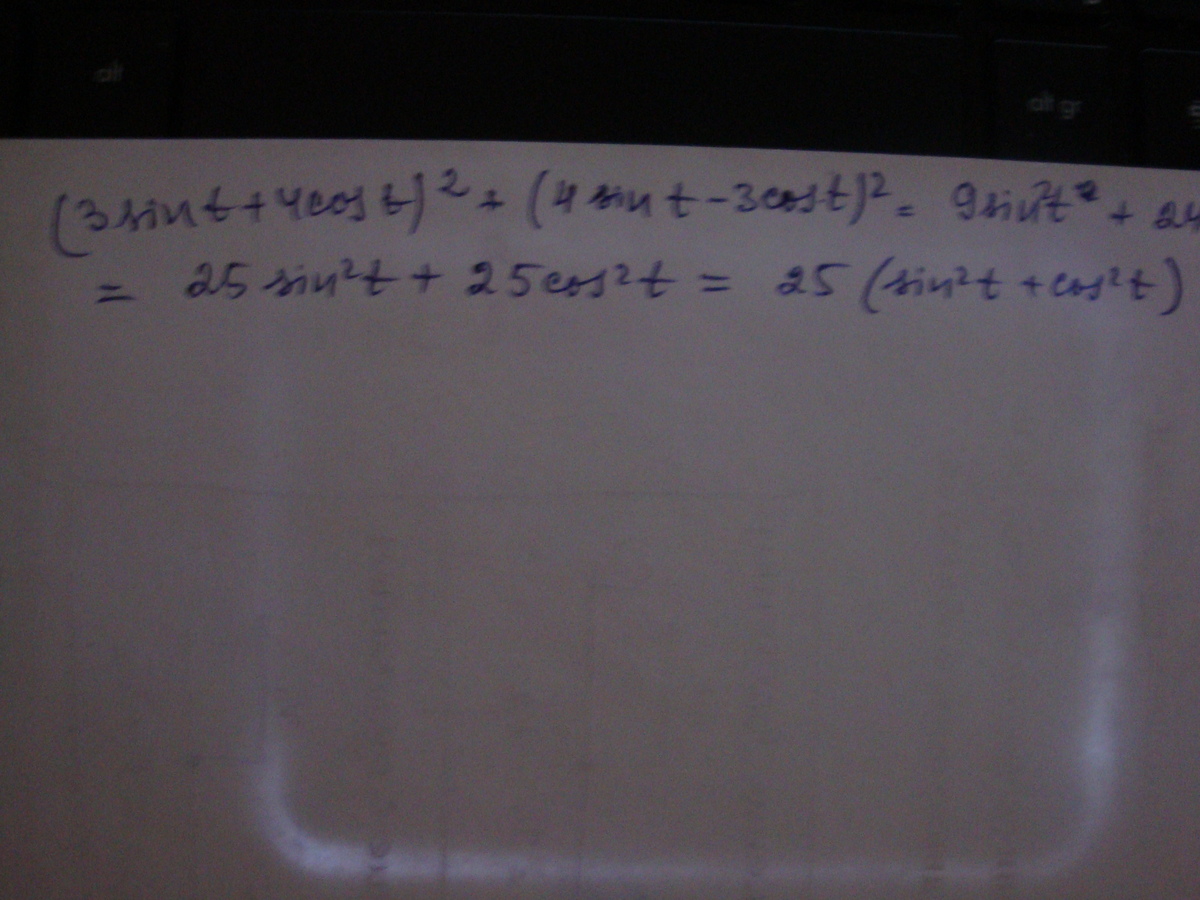 alt
alt gr
(3 sin t + 4 cos t)² + (4 sin t - 3 cos t)² = 9 sin² t + 24
= 25 sin² t + 25 cos² t = 25 (sin² t + cos² t)